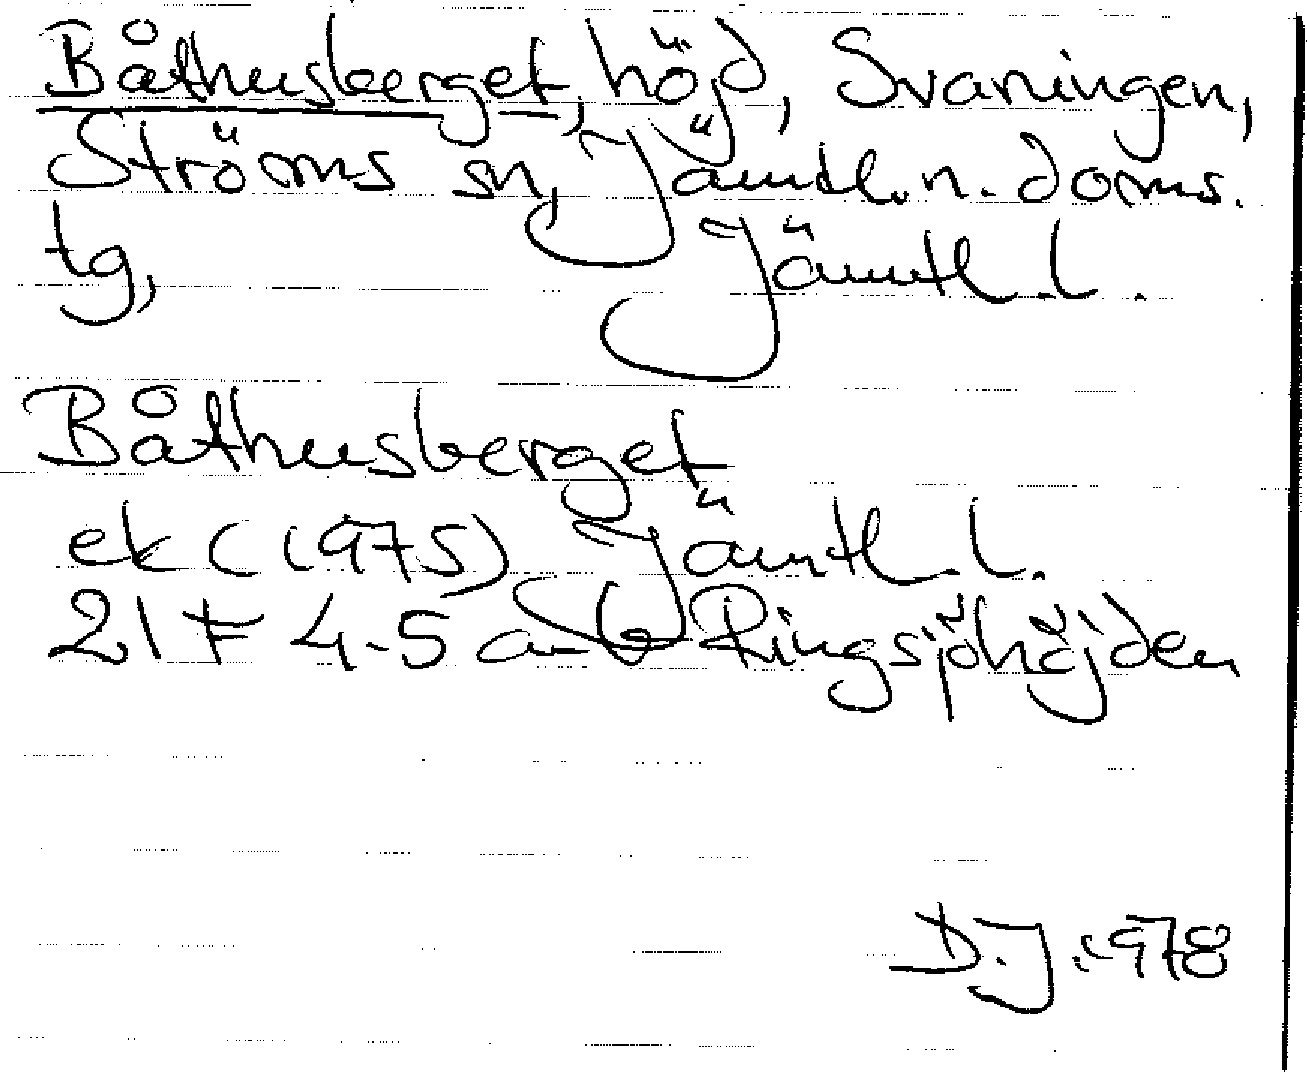 Båthusberget, höjd, Svaningen,
Ströms sn, Jämtl. n. doms.
tg, Jämtl. l.
Båthusberget
ek (1975) Jämtl. l.
21 F 4-5 a-b Ringsjöhöjden
D.J. 1978